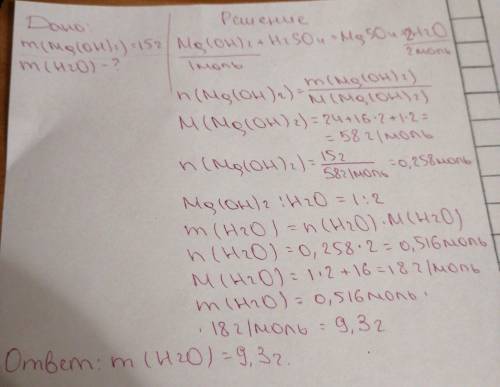 Дано:
m(Mg(OH)2)=15г
m(H2O)-?
Решение
Mg(OH)2+H2SO4=MgSO4+2H2O
1моль 2моль
n(Mg(OH)2)=m(Mg(OH)2)/M(Mg(OH)2)
M(Mg(OH)2)=24+16·2+1·2=
=58г/моль
n(Mg(OH)2)=15г/58г/моль=0,258моль
Mg(OH)2:H2O=1:2
m(H2O)=n(H2O)·M(H2O)
n(H2O)=0,258·2=0,516моль
M(H2O)=1·2+16=18г/моль
m(H2O)=0,516моль·
·18г/моль=9,3г
Ответ: m(H2O)=9,3г.